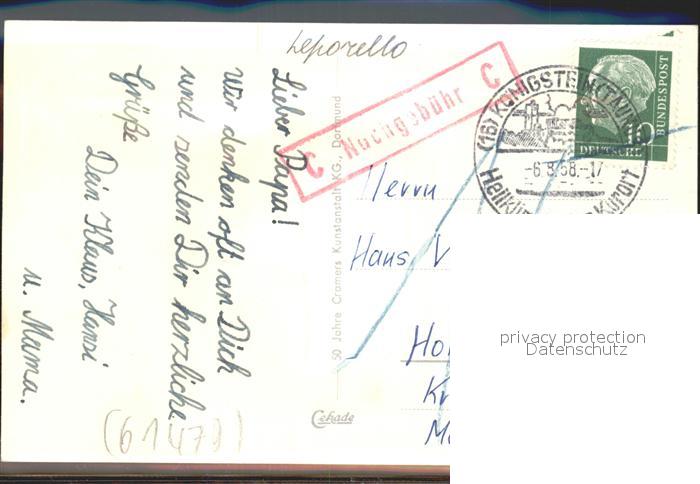 Leporello
Lieber Papa!
Wir denken oft an Dich
und senden Dir herzliche
Grüße
Dein Klaus, Hansi
u. Mama.
(61479)
50 Jahre Cramers Kunstanstalt KG., Dortmund
Cekade
C Nachgebühr C
(16) KÖNIGSTEIN (TAUN
-6.8.58.-17
Heilkli Kurort
10
DEUTSCHE
BUNDESPOST
Herrn
Hans V
Ho
K
M
privacy protection
Datenschutz